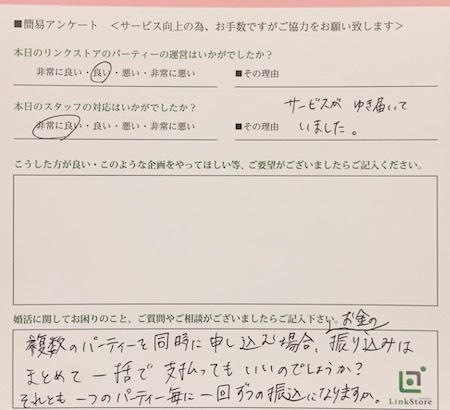 ■簡易アンケート ＜サービス向上の為、お手数ですがご協力をお願い致します＞
本日のリンクストアのパーティーの運営はいかがでしたか？
非常に良い・良い・悪い・非常に悪い ■その理由
本日のスタッフの対応はいかがでしたか？
非常に良い・良い・悪い・非常に悪い ■その理由
サービスが ゆき届いて
いました。
こうした方が良い・このような企画をやってほしい等、ご要望がございましたらご記入ください。
婚活に関してお困りのこと、ご質問やご相談がございましたらご記入下さい。
お金の
複数のパーティーを同時に申し込む場合、振り込みは
まとめて一括で支払ってもいいのでしょうか？
それとも一つのパーティー毎に一回ずつの振込になりますか。
LinkStore